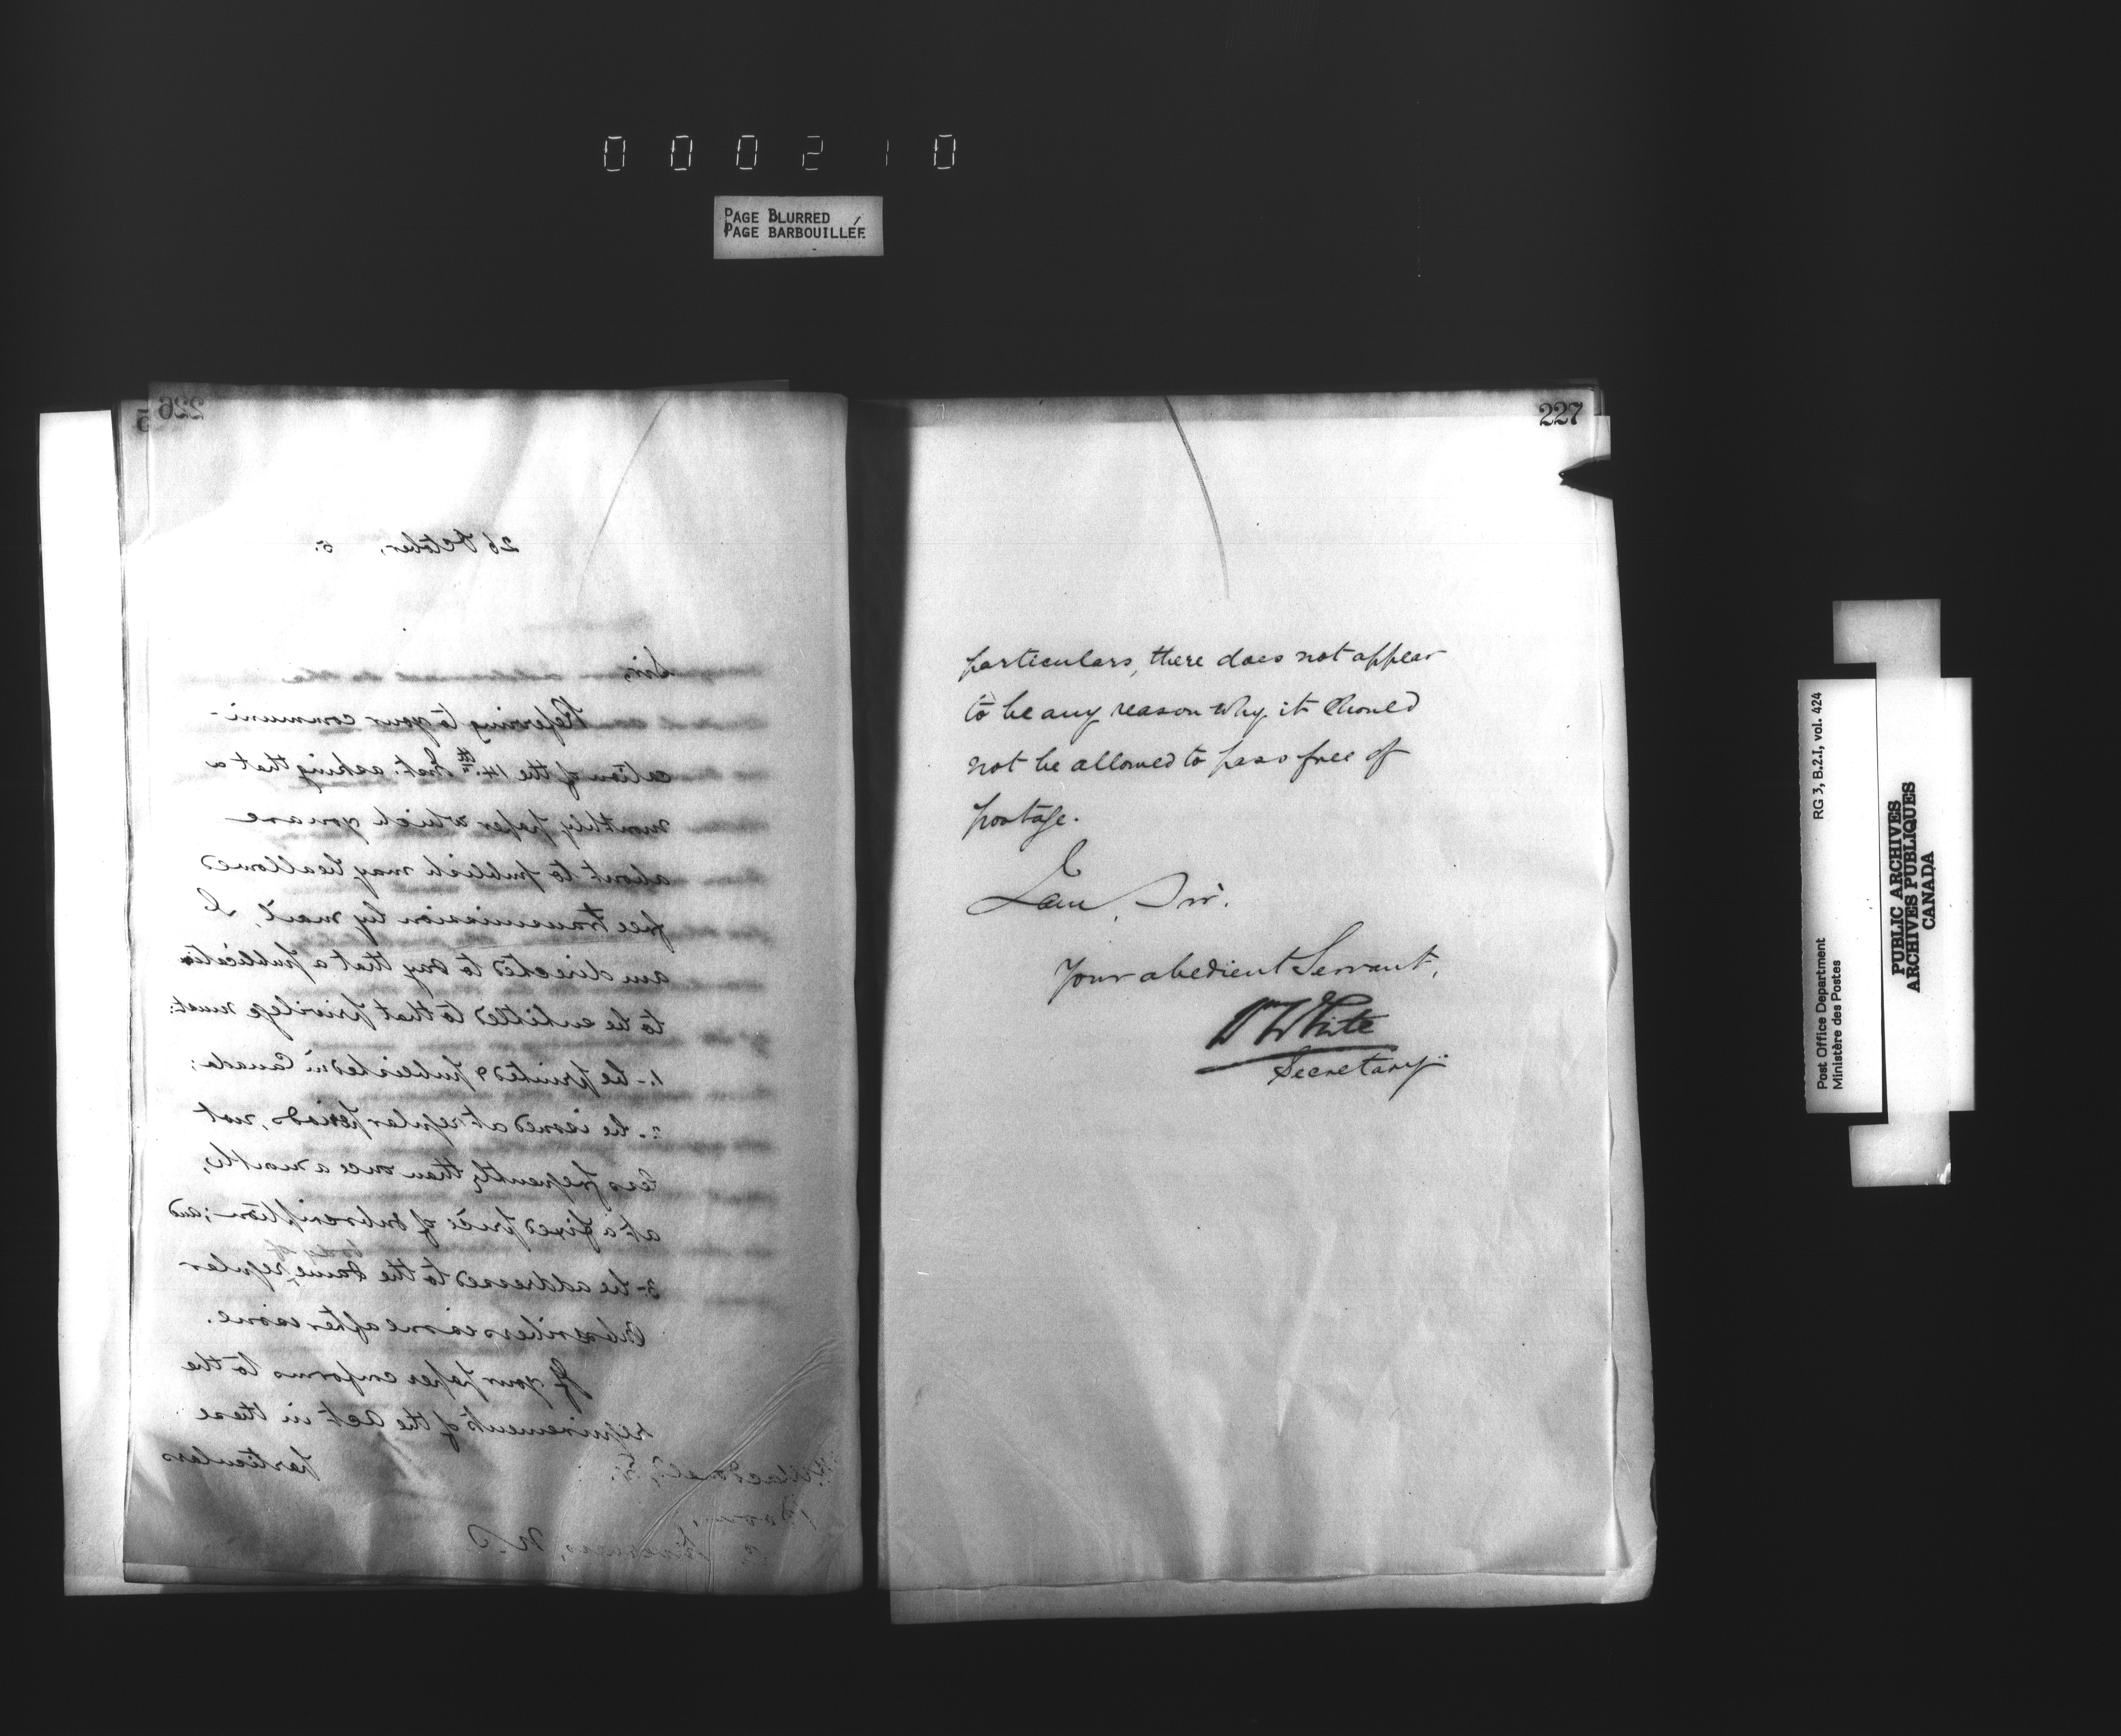 000210
PAGE BLURRED
PAGE BARBOUILLÉE
226
5
26 October, 5.
Sir,
Referring to your communi-
cation of the 14th Inst. asking that a
monthly paper which you are
about to publish may be allowed
free transmission by mail, I
am directed to say that a publication
to be entitled to that privilege must:
1.- be printed & published in Canada;
2.- be issued at regular periods, not
less frequently than once a month,
at a fixed price of subscription; and
body of
3- be addressed to the same regular
subscribers issue after issue.
If your paper conforms to the
requirements of the Act in these
particulars
MacDonald,
N.S.
227
particulars, there does not appear
to be any reason why it should
not be allowed to pass free of
postage.
I am, Sir,
Your obedient Servant,
Wm White
Secretary.
RG 3, B.2.I, vol. 424
Post Office Department
Ministère des Postes
PUBLIC ARCHIVES
ARCHIVES PUBLIQUES
CANADA